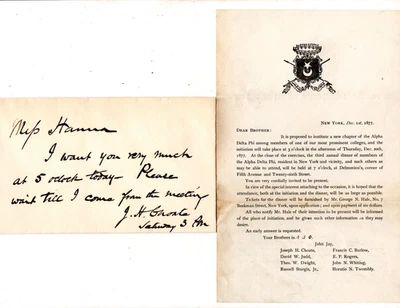 Miss Hanna
I want you very much
at 5 o'clock today— Please
wait till I come from the meeting
J. H. Choate
Saturday 3 Pm
NEW YORK, Dec. 1st, 1877.
DEAR BROTHER:
It is proposed to institute a new chapter of the Alpha
Delta Phi among members of one of our most prominent colleges, and the
initiation will take place at 3 o'clock in the afternoon of Thursday, Dec. 20th,
1877. At the close of the exercises, the third annual dinner of members of
the Alpha Delta Phi, resident in New York and vicinity, and such others as
may be able to attend, will be held at 7 o'clock, at Delmonico's, corner of
Fifth Avenue and Twenty-sixth Street.
You are very cordially invited to be present.
In view of the special interest attaching to the occasion, it is hoped that the
attendance, both at the initiation and the dinner, will be as large as possible.
Tickets for the dinner will be furnished by Mr. George H. Hale, No. 7
Beekman Street, New York, upon application; and upon payment of six dollars.
All who notify Mr. Hale of their intention to be present will be informed
of the place of initiation, and be given such other information as they may
desire.
An early answer is requested.
Your Brothers in Α Δ Φ.
John Jay,
Joseph H. Choate, Francis C. Barlow,
David W. Judd, E. P. Rogers,
Theo. W. Dwight, John N. Whiting,
Russell Sturgis, Jr., Horatio N. Twombly.